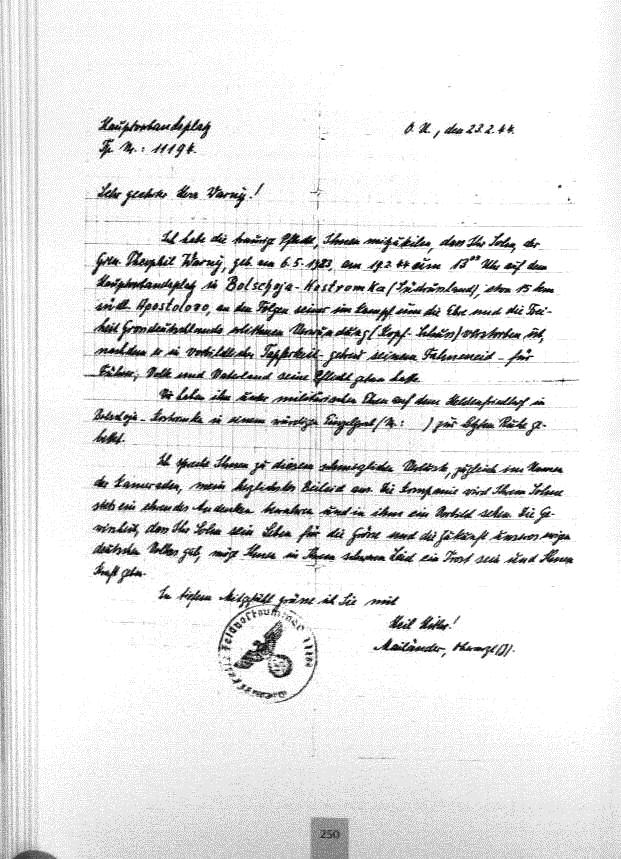 Hauptverbandsplatz
Fp. Nr.: 11194.
O. U., den 23.2.44.
Sehr geehrter Herr Warny!
Ich habe die traurige Pflicht, Ihnen mitzuteilen, dass Ihr Sohn, der
Gren. Theophil Warny, geb. am 6.5.1923, am 19.2.44 um 13 Uhr auf dem
Hauptverbandsplatz in Bolschoja-Kostromka (Südrussland), etwa 15 km
südl. Apostolovo, an den Folgen seiner im Kampf um die Ehre und die Frei-
heit Grossdeutschlands erlittenen Verwundung (Kopf-Schuss) verstorben ist,
nachdem er in vorbildlicher Tapferkeit - getreu seinem Fahneneid - für
Führer, Volk und Vaterland seine Pflicht getan hatte.
Wir haben ihn unter militärischen Ehren auf dem Heldenfriedhof in
Bolschoja-Kostromka in einem würdigen Einzelgrab (Nr.: ) zur letzten Ruhe ge-
bettet.
Ich spreche Ihnen zu diesem schmerzlichen Verluste, zugleich im Namen
der Kameraden, mein herzlichstes Beileid aus. Die Kompanie wird Ihrem Sohne
stets ein ehrendes Andenken bewahren und in ihm ein Vorbild sehen. Die Ge-
wissheit, dass Ihr Sohn sein Leben für die Grösse und die Zukunft unseres ewigen
deutschen Volkes gab, möge Ihnen in Ihrem schweren Leid ein Trost sein und Ihnen
Kraft geben.
In tiefem Mitgefühl grüsse ich Sie mit
Heil Hitler!
Mailänder, Oberarzt
Feldpostnummer
250